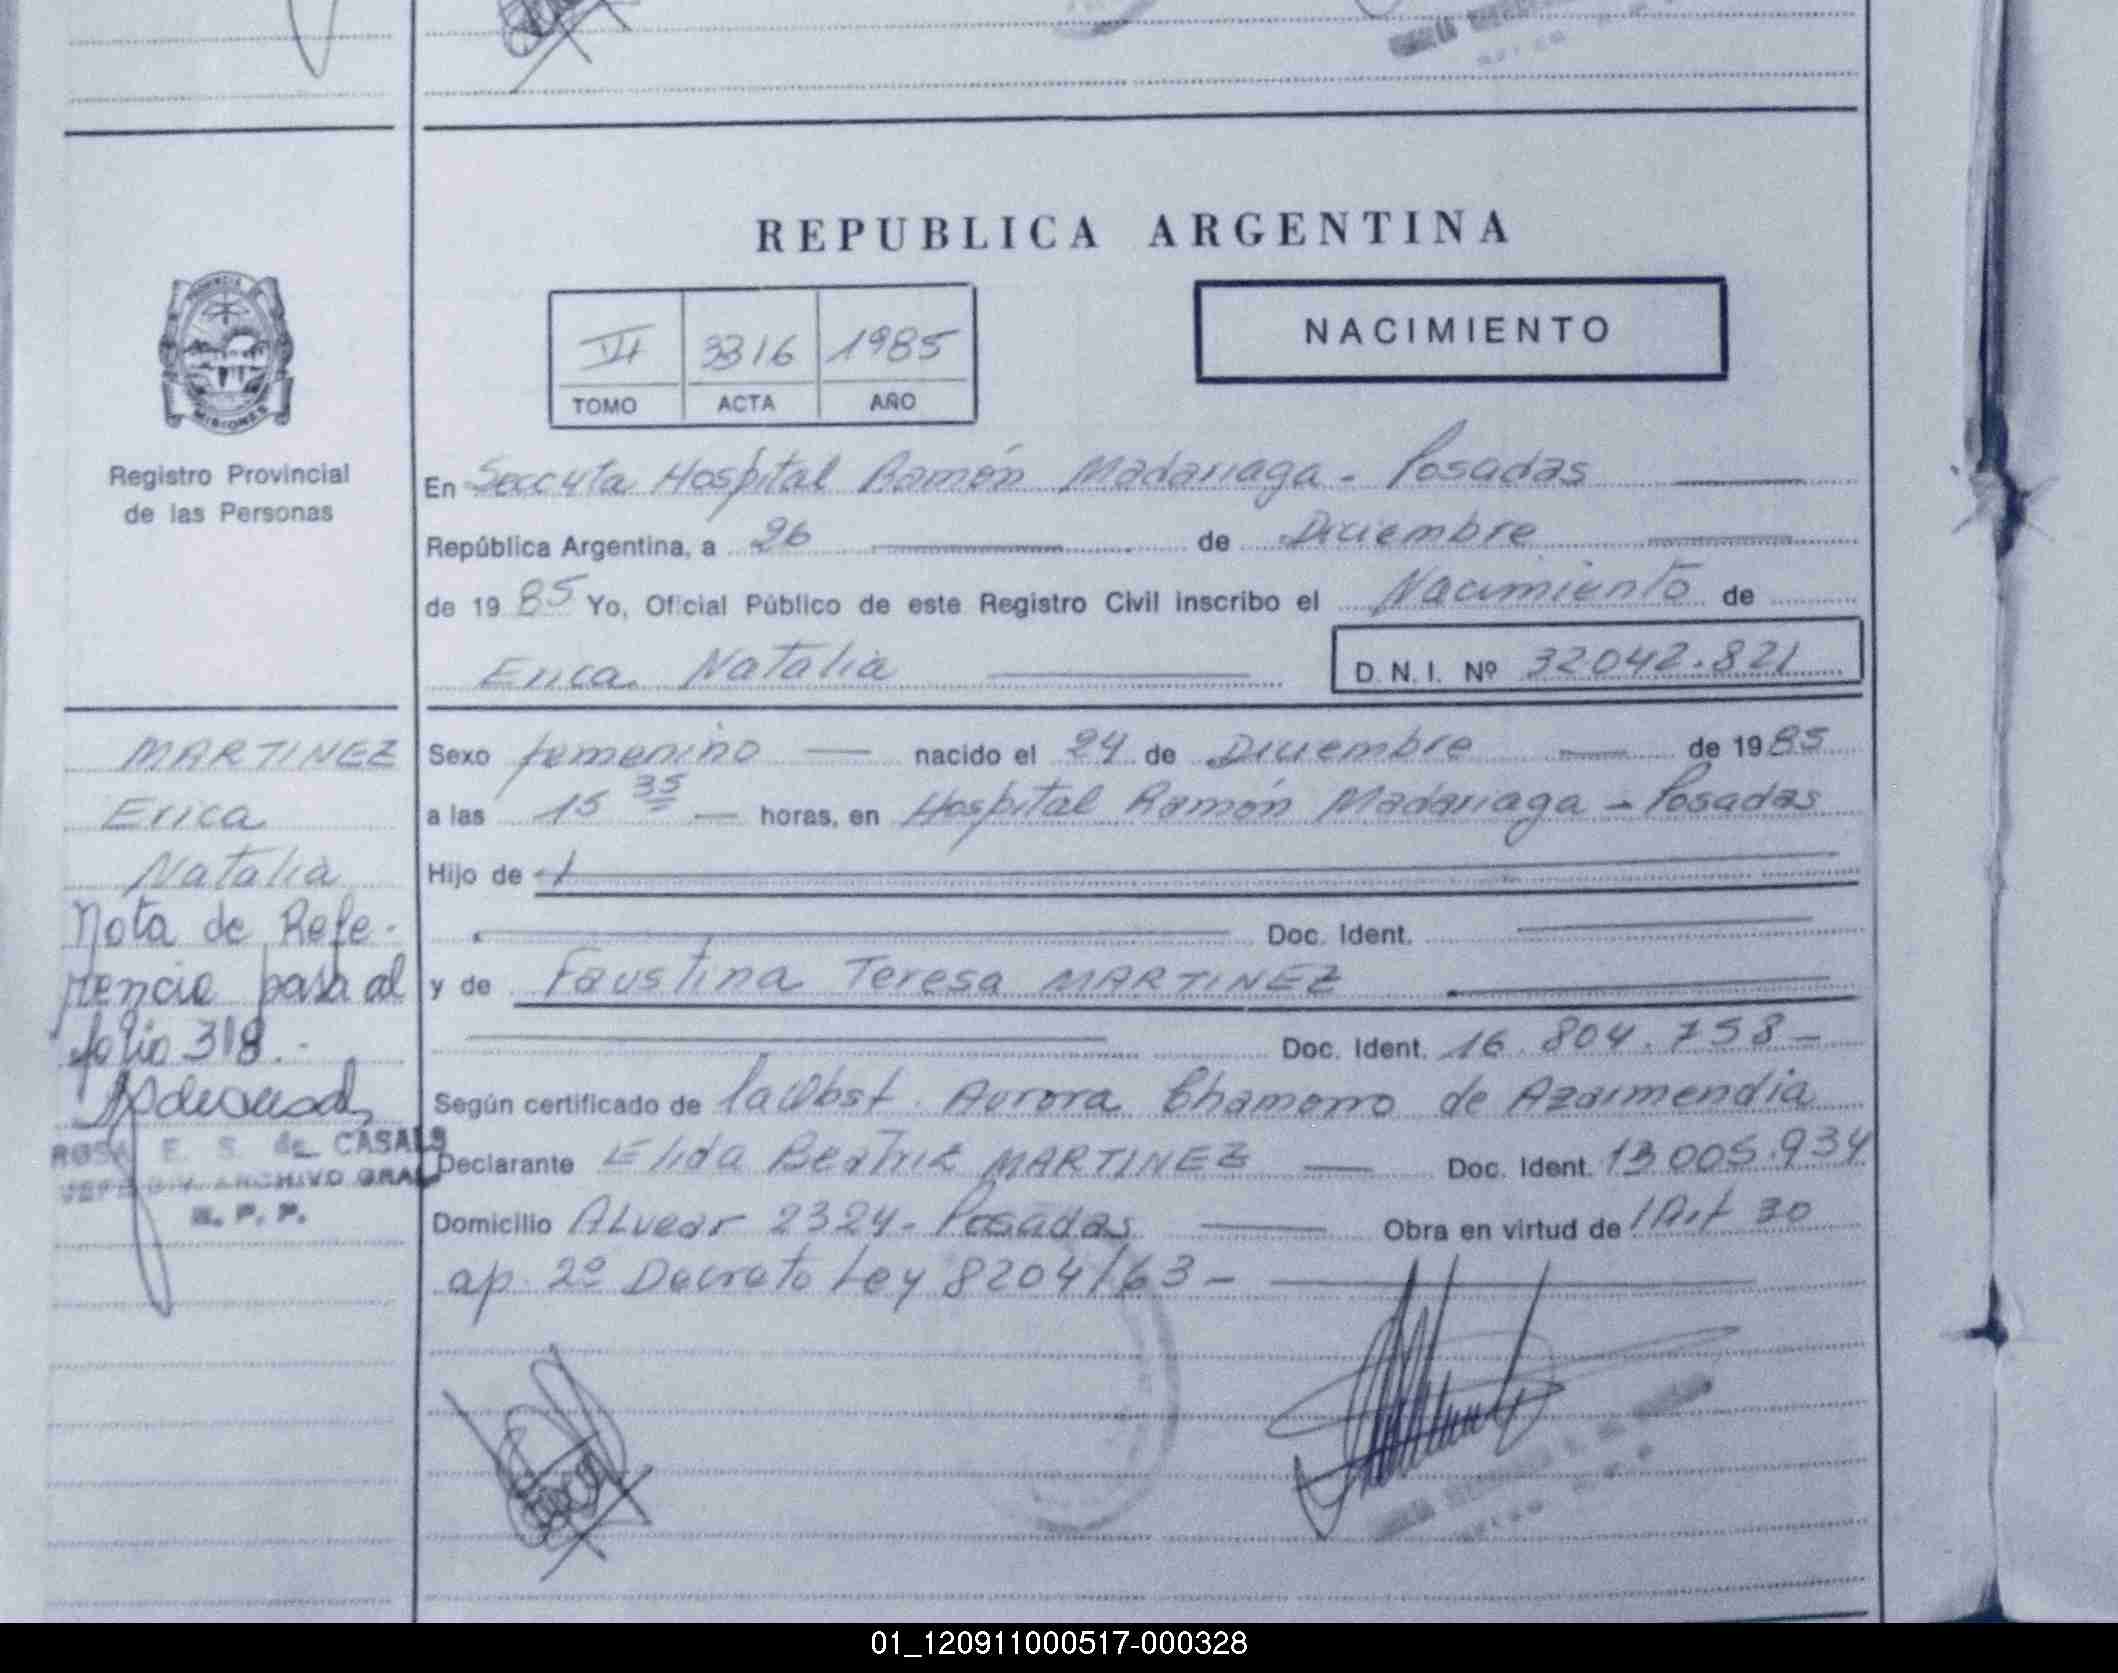 REPUBLICA ARGENTINA
NACIMIENTO
VII 3316 1985
TOMO ACTA AÑO
MISIONES
Registro Provincial
de las Personas
En Secc 4ta Hospital Ramón Madariaga - Posadas
República Argentina, a 26 de Diciembre
de 1985 Yo, Oficial Público de este Registro Civil inscribo el Nacimiento de
Erica Natalia D.N.I. Nº 32042.821
MARTINEZ
Erica
Natalia
Nota de Refe-
rencia pasa al
folio 318.-
ROSA E. S. de CASALS
JEFE DIV. ARCHIVO GRAL
R. P. P.
Sexo femenino nacido el 24 de Diciembre de 1985
a las 15 35 horas, en Hospital Ramón Madariaga - Posadas
Hijo de
Doc. Ident.
y de Faustina Teresa MARTINEZ
Doc. Ident. 16.804.758-
Según certificado de la Obst. Aurora Chamorro de Azarmendia
Declarante Elida Beatriz MARTINEZ Doc. Ident. 13.005.934
Domicilio Alvear 2324- Posadas Obra en virtud de /Art 30
ap. 2º Decreto Ley 8204/63-
01_120911000517-000328